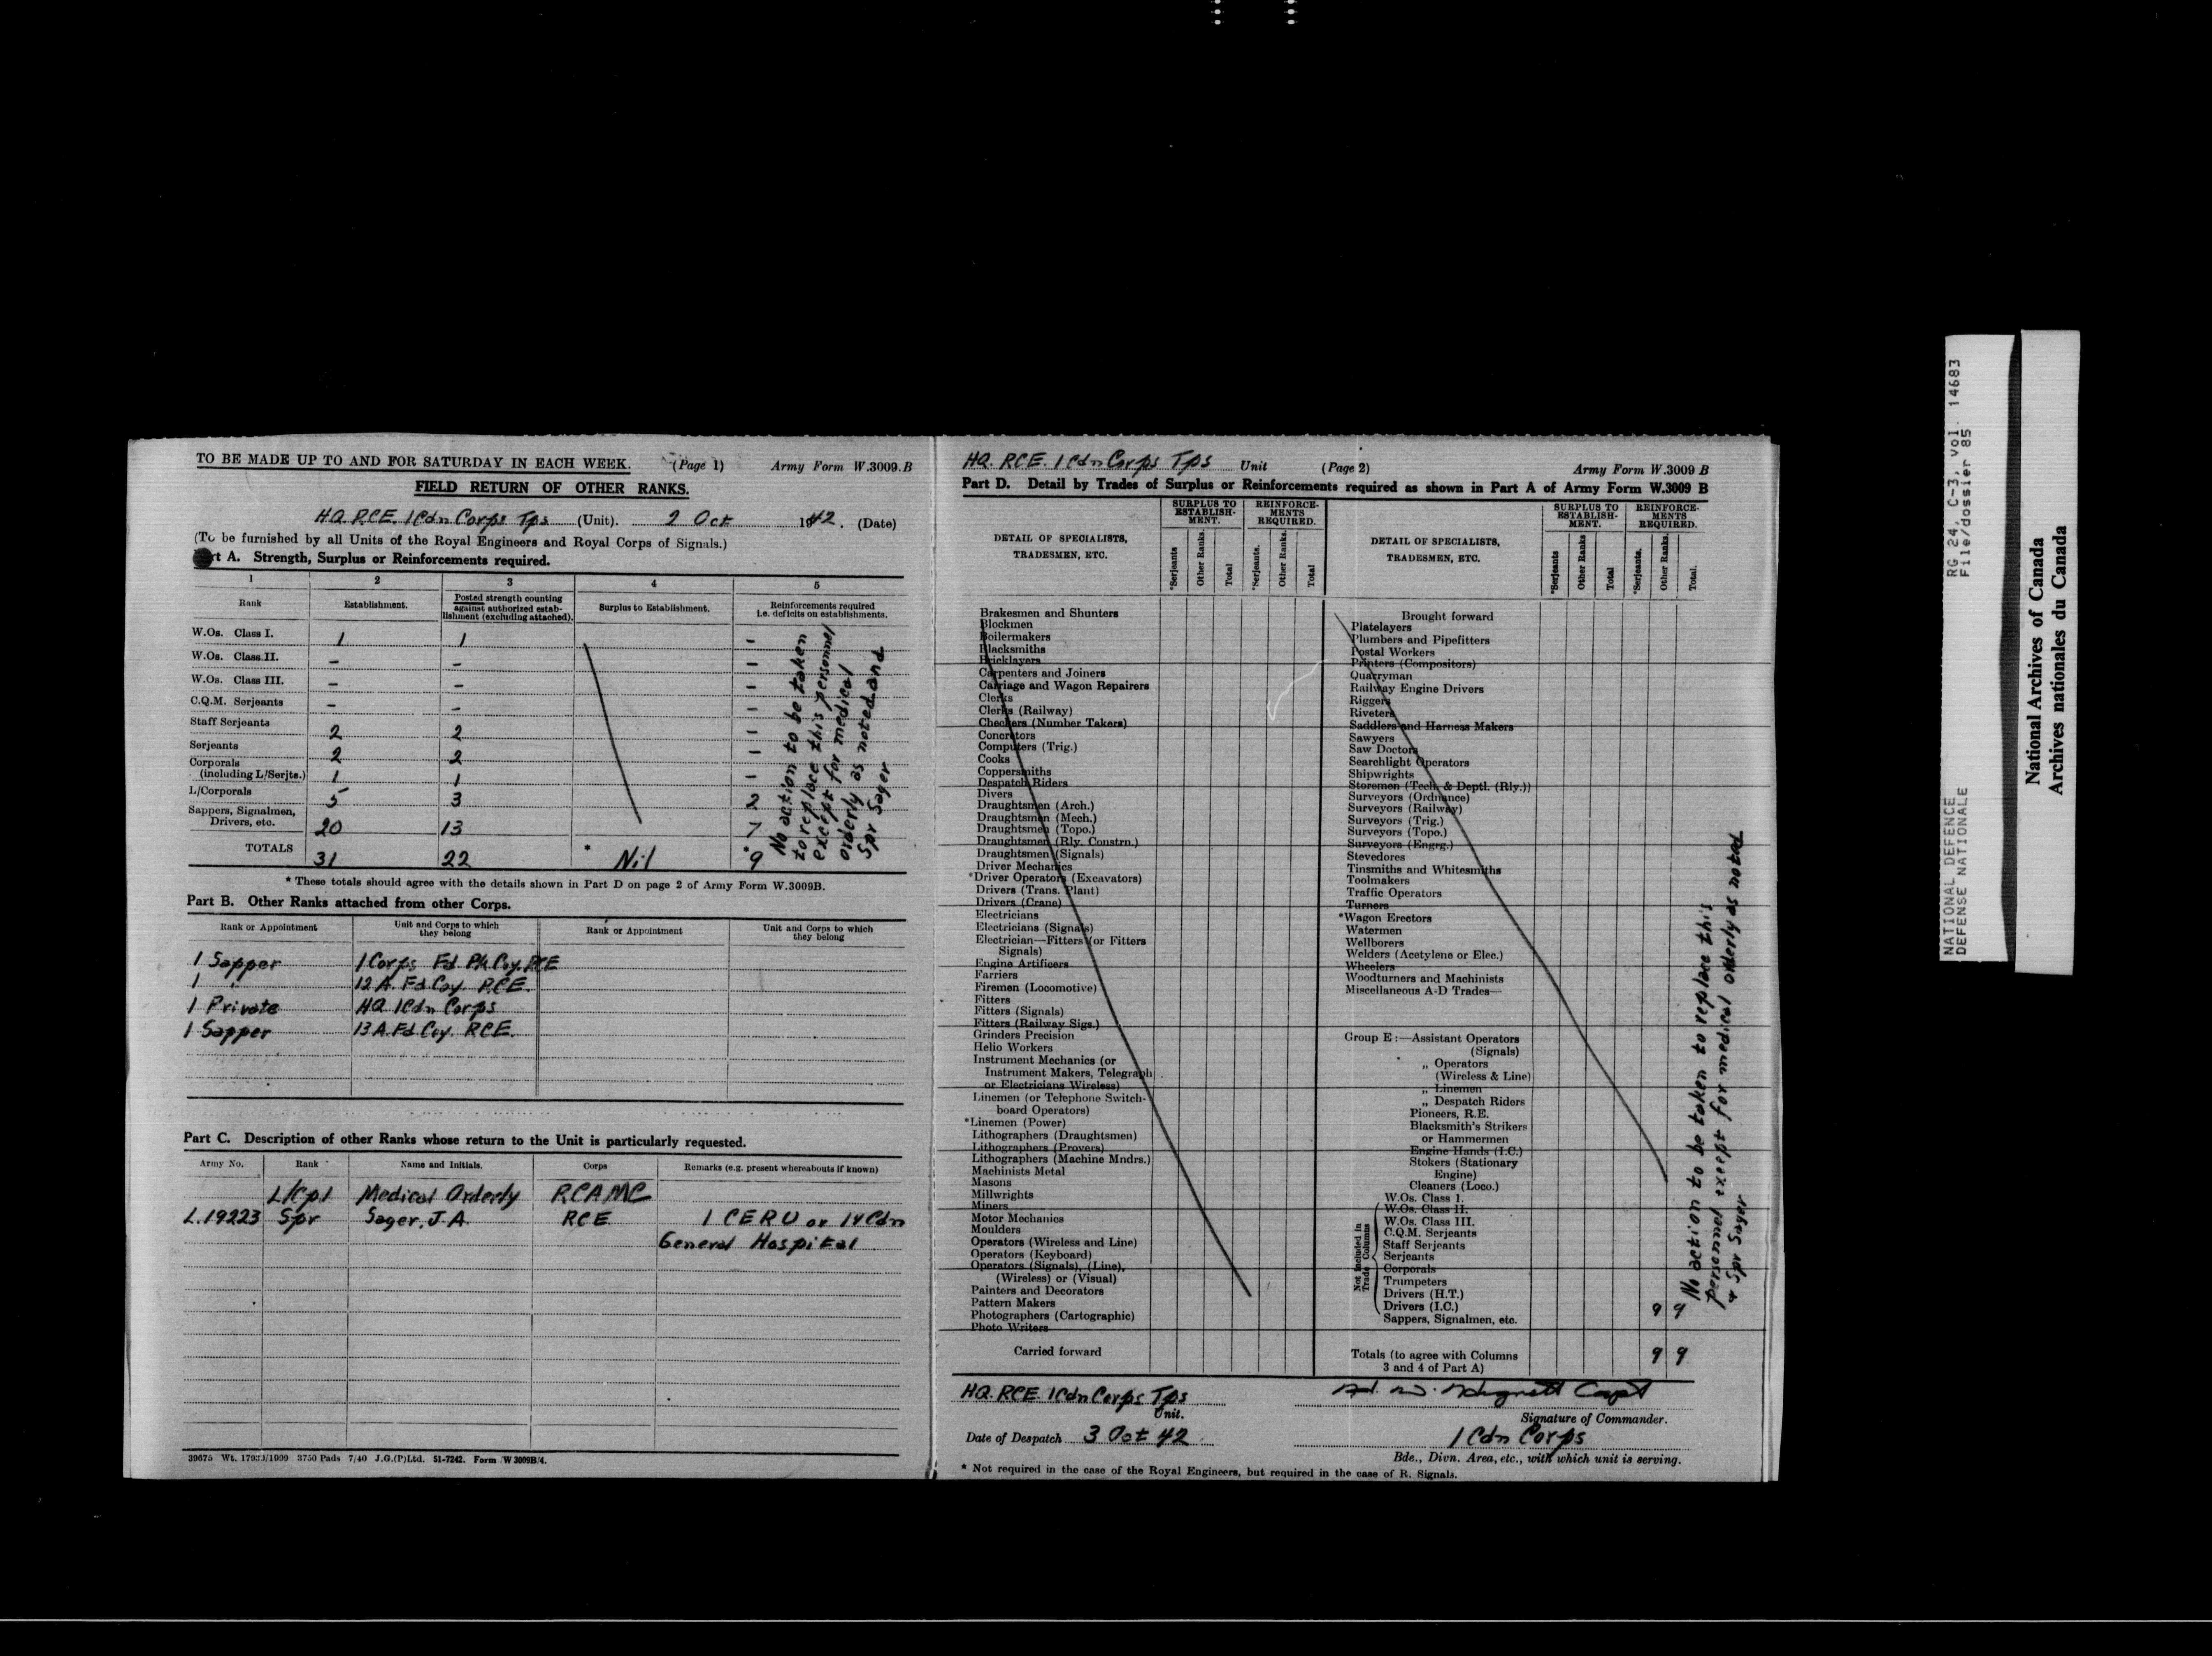 TO BE MADE UP TO AND FOR SATURDAY IN EACH WEEK. (Page 1) Army Form W.3009.B
FIELD RETURN OF OTHER RANKS.
HQ. RCE. 1 Cdn Corps Tps (Unit). 2 Oct 1942. (Date)
(To be furnished by all Units of the Royal Engineers and Royal Corps of Signals.)
rt A. Strength, Surplus or Reinforcements required.
1 2 3 4 5
Rank Establishment. Posted strength counting against authorized estab- lishment (excluding attached). Surplus to Establishment. Reinforcements required i.e. deficits on establishments.
W.Os. Class I. 1 1 -
W.Os. Class II. - - -
W.Os. Class III. - - -
C.Q.M. Serjeants - - -
Staff Serjeants 2 2 -
Serjeants 2 2 -
Corporals
(including L/Serjts.) 1 1 -
L/Corporals 5 3 2
Sappers, Signalmen,
Drivers, etc. 20 13 7
TOTALS 31 22 * Nil *9
No action to be taken
to replace this personnel
except for medical
orderly as noted and
Spr Sager
* These totals should agree with the details shown in Part D on page 2 of Army Form W.3009B.
Part B. Other Ranks attached from other Corps.
Rank or Appointment Unit and Corps to which they belong Rank or Appointment Unit and Corps to which they belong
1 Sapper 1 Corps Fd Pk Coy. RCE
1 " 12 A. Fd Coy. RCE.
1 Private HQ 1 Cdn Corps
1 Sapper 13 A. Fd Coy. RCE.
Part C. Description of other Ranks whose return to the Unit is particularly requested.
Army No. Rank Name and Initials. Corps Remarks (e.g. present whereabouts if known)
L/Cpl Medical Orderly RCAMC
L.19223 Spr Sager, J.A. RCE 1 CERU or 14 Cdn
General Hospital
39675 Wt. /1909 3750 Pads 7/40 J.G.(P)Ltd. 51-7242. Form W 3009B/4.
HQ. RCE. 1 Cdn Corps Tps Unit (Page 2) Army Form W.3009 B
Part D. Detail by Trades of Surplus or Reinforcements required as shown in Part A of Army Form W.3009 B
DETAIL OF SPECIALISTS, TRADESMEN, ETC. SURPLUS TO ESTABLISH- MENT. REINFORCE- MENTS REQUIRED.
*Serjeants Other Ranks. Total *Serjeants. Other Ranks. Total
Brakesmen and Shunters
Blockmen
Boilermakers
Blacksmiths
Bricklayers
Carpenters and Joiners
Carriage and Wagon Repairers
Clerks
Clerks (Railway)
Checkers (Number Takers)
Concretors
Computers (Trig.)
Cooks
Coppersmiths
Despatch Riders
Divers
Draughtsmen (Arch.)
Draughtsmen (Mech.)
Draughtsmen (Topo.)
Draughtsmen (Rly. Constrn.)
Draughtsmen (Signals)
Driver Mechanics
*Driver Operators (Excavators)
Drivers (Trans. Plant)
Drivers (Crane)
Electricians
Electricians (Signals)
Electrician—Fitters (or Fitters
Signals)
Engine Artificers
Farriers
Firemen (Locomotive)
Fitters
Fitters (Signals)
Fitters (Railway Sigs.)
Grinders Precision
Helio Workers
Instrument Mechanics (or
Instrument Makers, Telegraph
or Electricians Wireless)
Linemen (or Telephone Switch-
board Operators)
*Linemen (Power)
Lithographers (Draughtsmen)
Lithographers (Provers)
Lithographers (Machine Mndrs.)
Machinists Metal
Masons
Millwrights
Miners
Motor Mechanics
Moulders
Operators (Wireless and Line)
Operators (Keyboard)
Operators (Signals), (Line),
(Wireless) or (Visual)
Painters and Decorators
Pattern Makers
Photographers (Cartographic)
Photo Writers
Carried forward
DETAIL OF SPECIALISTS, TRADESMEN, ETC. SURPLUS TO ESTABLISH- MENT. REINFORCE- MENTS REQUIRED.
*Serjeants Other Ranks Total *Serjeants. Other Ranks. Total.
Brought forward
Platelayers
Plumbers and Pipefitters
Postal Workers
Printers (Compositors)
Quarryman
Railway Engine Drivers
Riggers
Riveters
Saddlers and Harness Makers
Sawyers
Saw Doctors
Searchlight Operators
Shipwrights
Storemen (Tech. & Deptl. (Rly.))
Surveyors (Ordnance)
Surveyors (Railway)
Surveyors (Trig.)
Surveyors (Topo.)
Surveyors (Engrg.)
Stevedores
Tinsmiths and Whitesmiths
Toolmakers
Traffic Operators
Turners
*Wagon Erectors
Watermen
Wellborers
Welders (Acetylene or Elec.)
Wheelers
Woodturners and Machinists
Miscellaneous A-D Trades—
Group E :—Assistant Operators
(Signals)
„ Operators
(Wireless & Line)
„ Linemen
„ Despatch Riders
Pioneers, R.E.
Blacksmith's Strikers
or Hammermen
Engine Hands (I.C.)
Stokers (Stationary
Engine)
Cleaners (Loco.)
Not included in Trade Columns
W.Os. Class I.
W.Os. Class II.
W.Os. Class III.
C.Q.M. Serjeants
Staff Serjeants
Serjeants
Corporals
Trumpeters
Drivers (H.T.)
Drivers (I.C.) 9 9
Sappers, Signalmen, etc.
Totals (to agree with Columns 9 9
3 and 4 of Part A)
No action to be taken to replace this
personnel except for medical orderly as noted
& Spr Sager
HQ. RCE. 1 Cdn Corps Tps
Unit.
Capt
Signature of Commander.
Date of Despatch 3 Oct 42
1 Cdn Corps
Bde., Divn. Area, etc., with which unit is serving.
* Not required in the case of the Royal Engineers, but required in the case of R. Signals.
NATIONAL DEFENCE RG 24, C-3, vol. 14683
DEFENSE NATIONALE File/dossier 85
National Archives of Canada
Archives nationales du Canada